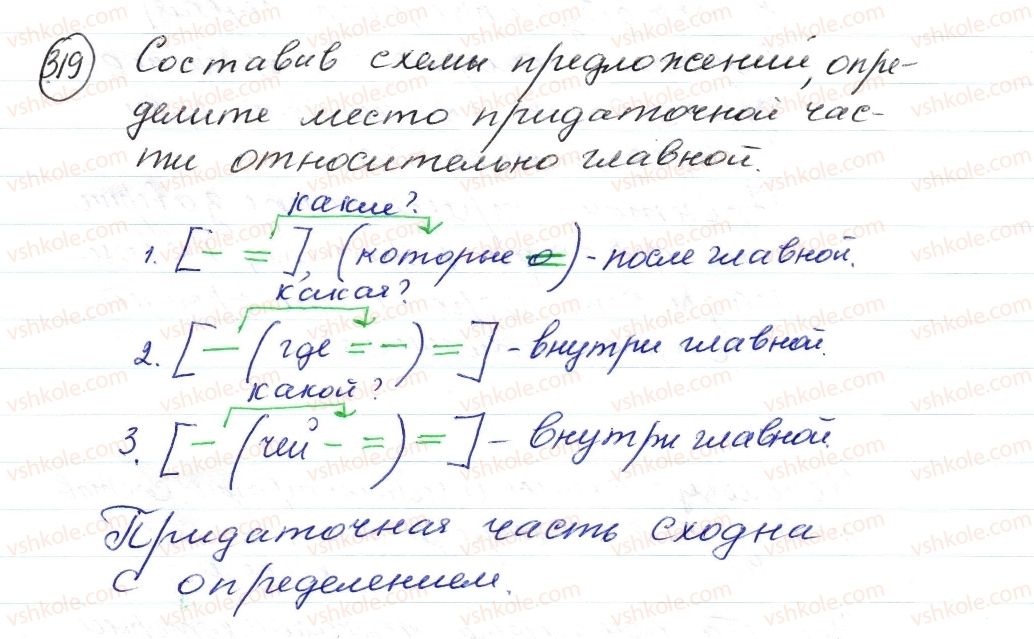 319 Составив схемы предложений, опре-
делите место придаточной час-
ти относительно главной.
какие?
1. [– =], (которые =) - после главной.
какая?
2. [– (где = –) =] - внутри главной.
какой?
3. [– (чей – =) =] – внутри главной.
Придаточная часть сходна
с определением.